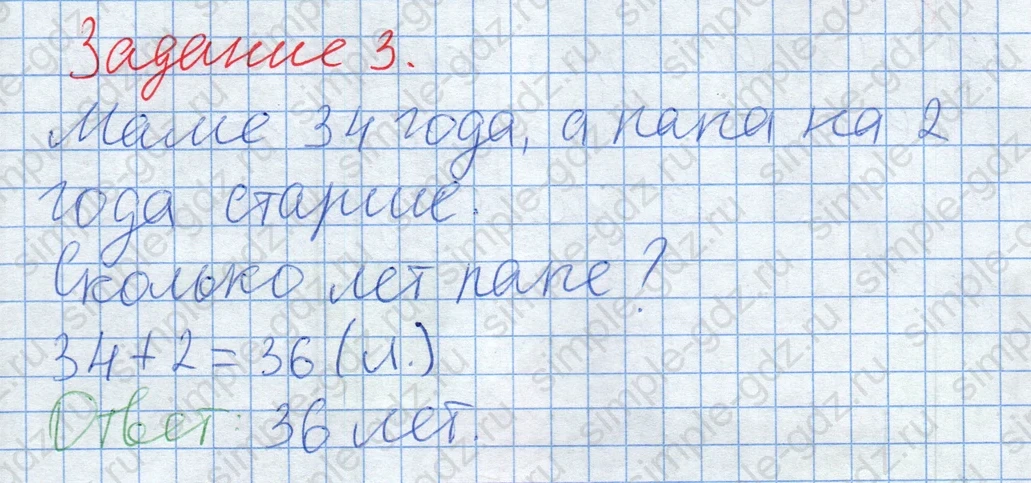 Задание 3.
Маме 34 года, а папа на 2
года старше.
Сколько лет папе?
34+2=36 (л.)
Ответ: 36 лет.